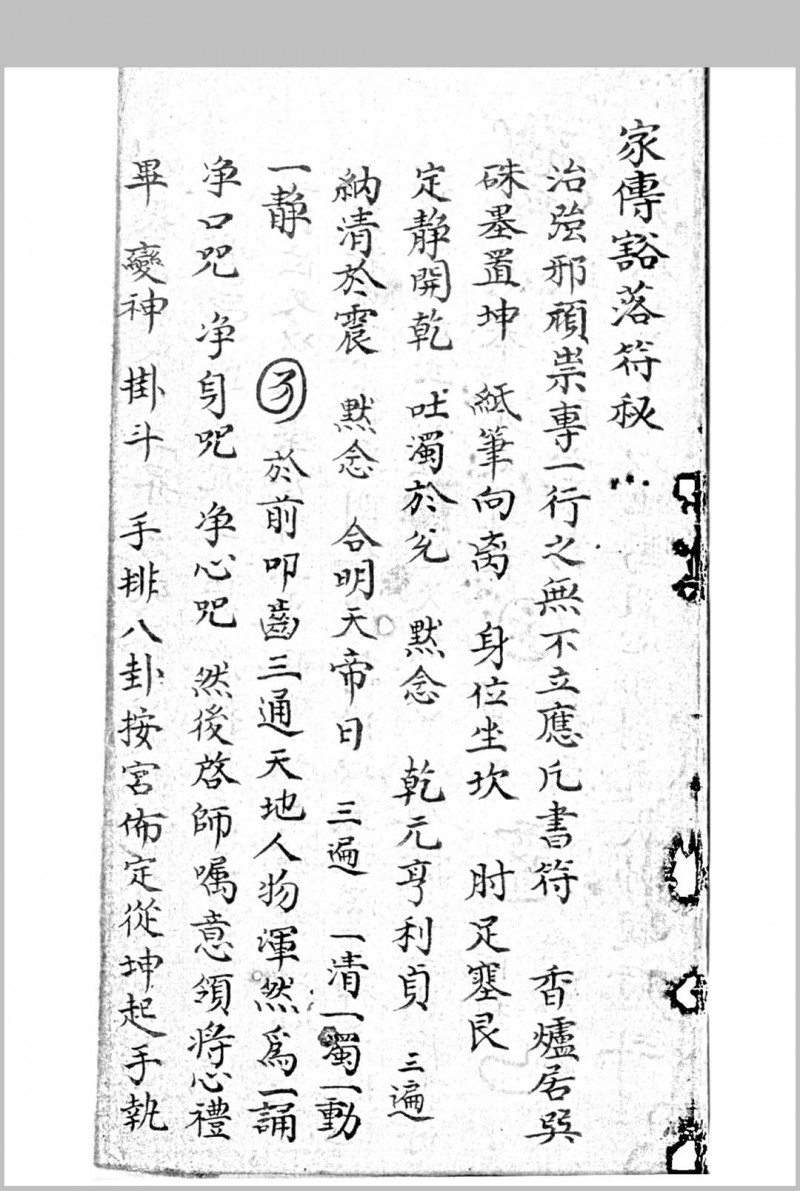 家傳豁落符秘
治強邪頑祟專一行之無不立應凡書符 香爐居巽
硃墨置坤 紙筆向离 身位坐坎 肘足塞艮
定静開乾 吐濁於兊 黙念 乾元亨利貞 三遍
納清於震 黙念 合明天帝日 三遍 一清一濁一動
一静 於前叩齒三通天地人物渾然爲一誦
净口咒 净身咒 净心咒 然後啓師嘱意領將心禮
畢 變神 掛斗 手排八卦按宮佈定從坤起手執